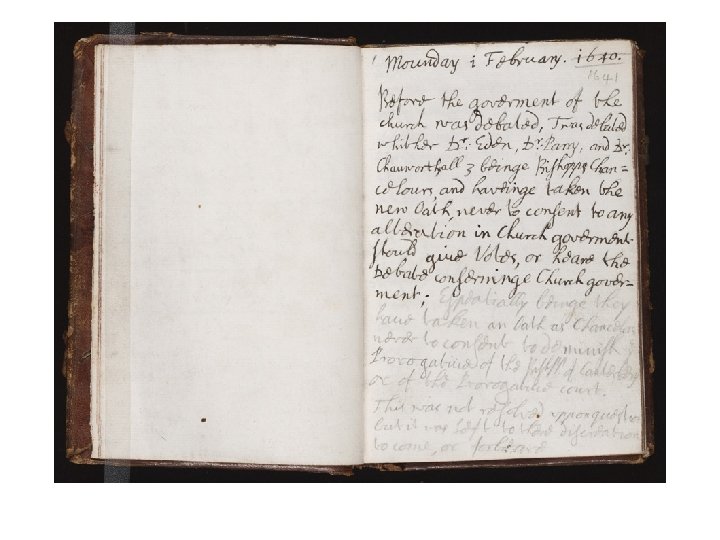 Mounday i February. i640.
1641
Before the goverment of the
church was debated, T'was debated
whither Dr: Eden, Dr: Parry, and Dr.
Chauworth all 3 beinge Bishopps Chan=
celours, and havinge taken the
new Oath, never to consent to any
alteration in Church goverment
should give Votes, or heare the
Debate conserninge Church gover=
ment;
Espetially beinge they
have taken an Oath as Chancelours
never to consent to deminish
Prorogative of the Bishp of Canterbery
or of the Prorogative court.
This was not resolved uppon question
but it was left to there discreation
to come, or forbeare